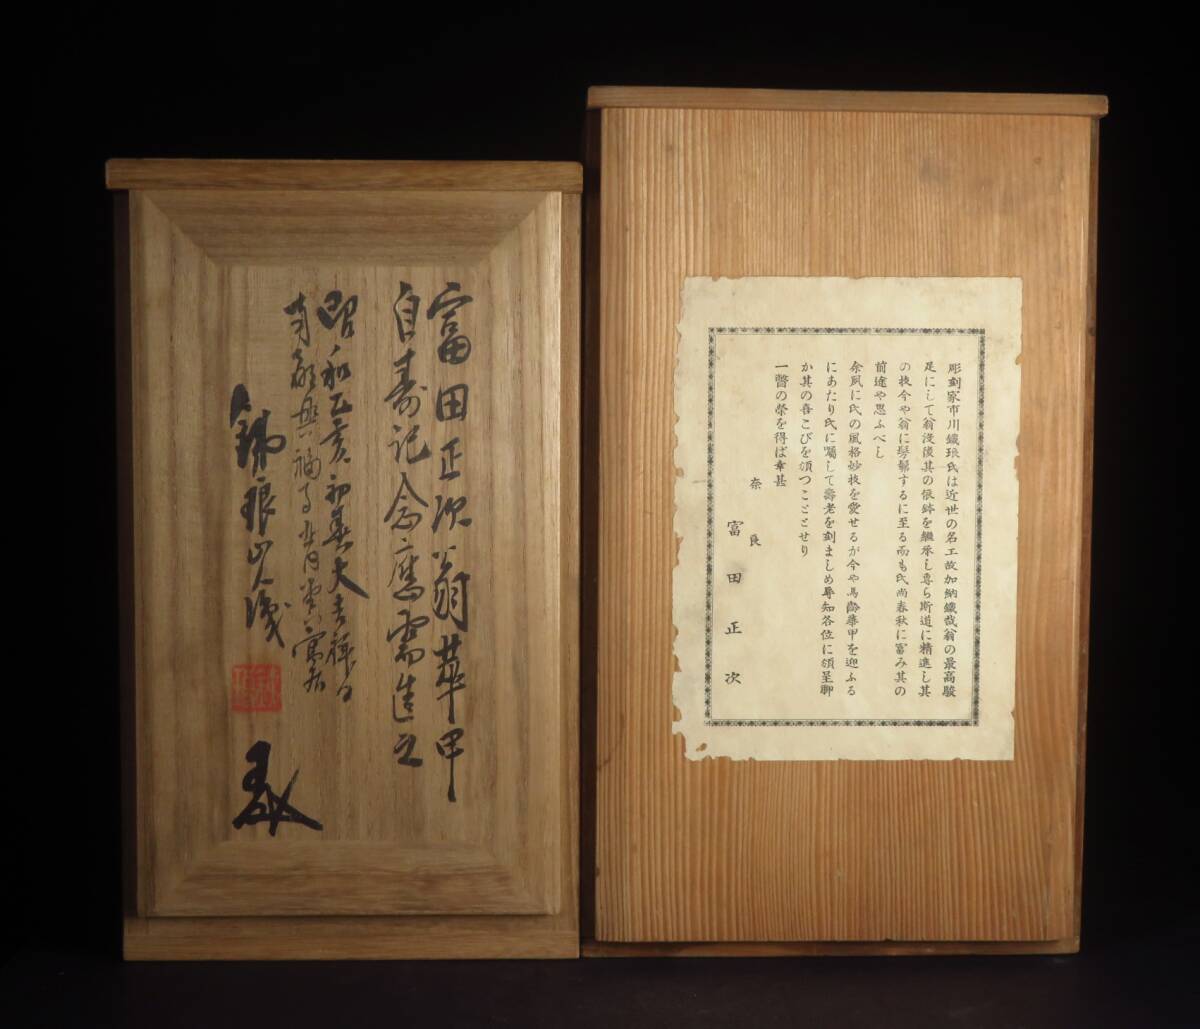 富田正次翁華甲
自壽記念應需造之
昭和乙亥初春大吉祥日
興福寺 寓居
鐵琅山人識
彫刻家市川鐵琅氏は近世の名工故加納鐵哉翁の最高駿
足にして翁没後其の依鉢を繼承し専ら斯道に精進し其
の技今や翁に髣髴するに至る而も氏尚春秋に富み其の
前途や思ふべし
余夙に氏の風格妙技を愛せるが今や馬齢華甲を迎ふる
にあたり氏に囑して壽老を刻ましめ辱知各位に頒呈聊
か其の喜こびを頒つこととせり
一瞥の榮を得ば幸甚
奈良
富田正次